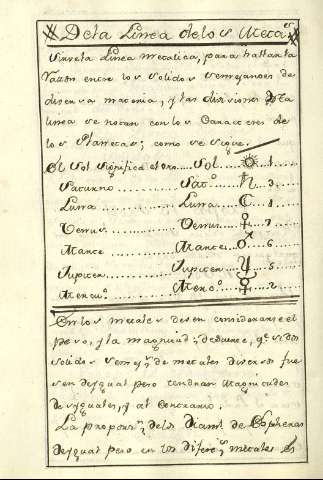 De la Linea de los Metales
Sirve la Linea metalica, para hallar la
razon entre los Solidos Semejantes de
diversa materia, y las divisiones de la
linea se notan con los Caracteres de
los Planetas; como se sigue.
El Sol significa el oro .... Sol .. ☉ .. 1 ..
Saturno .......... Sat.º .. ♄ .. 3 ..
Luna .......... Luna .. ☾ .. 4 ..
Venus .......... Venus .. ♀ .. 7 ..
Marte .......... Marte .. ♂ .. 6 ..
Jupiter .......... Jupiter .. ♃ .. 5 ..
Mercu.º .......... Merc.º .. ☿ .. 2 ..
En los metales deven considerarse el
peso, y la magnitud;
Solidos Semej.s de metales diversos fue
sen de ygual peso tendran Magnitudes
desyguales, y al Contrario.
La propor.n de los Diam.s de Espheras
de ygual peso en los difer.s metales es